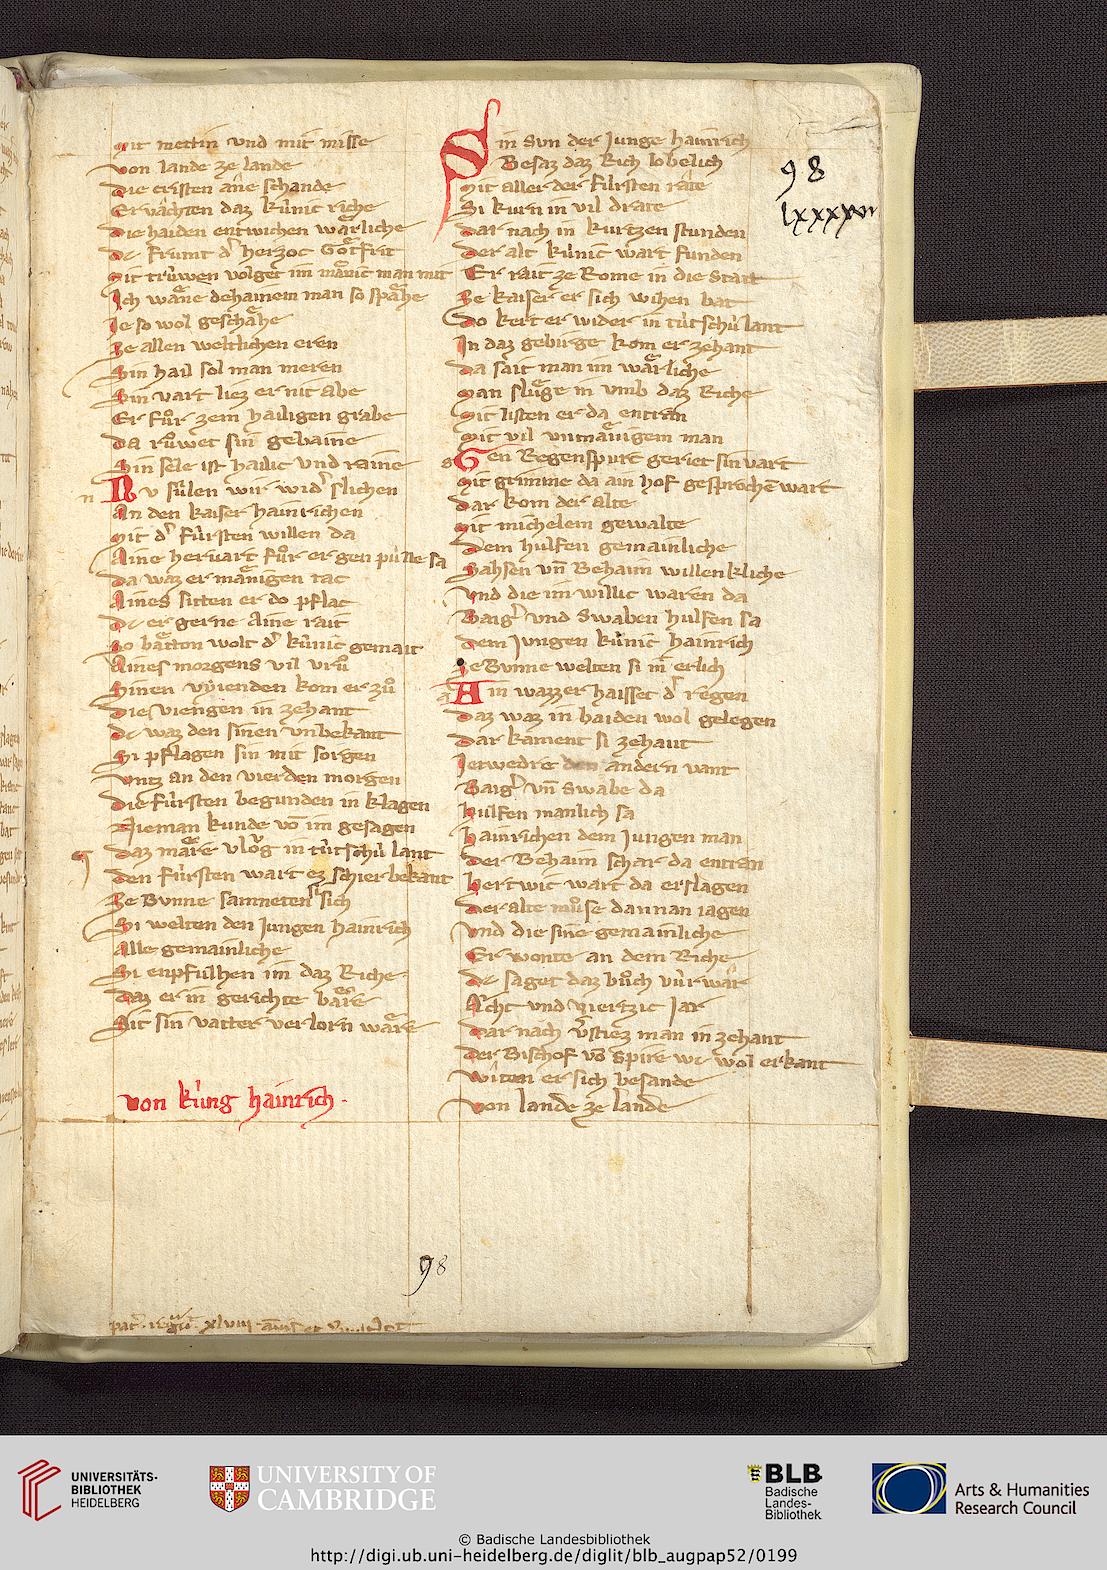 Mit mettin vnd mit misse
von lande ze lande
Die cristen ane schande
Ervachten daz kúnic riche
Die haiden entwichen wärliche
dc frumt dˀ herzoc Götfrit
Mit trúwen volget im mänic man mit
Ich wäne dehainem man so spähe
Je so wol geschähe
Ze allen weltlichen eren
Sin hail sol man meren
Sin vart liez er nit abe
Er fůr zem hailigen grabe
Da růwet sin gebaine
Sin sele ist hailic vnd raine
n
Nv súlen wir widˀ slichen
An den kaiser hainrichen
Mit dˀ fúrsten willen da
Aine hervart fůr er gen púlle sa
Da waz er mänigen tac
Aines sitten er do pflac
dc er gerne Aine rait
So bätton wolt dˀ kúnic gemait
Aines morgens vil vrů
Sinen vyienden kom er zů
Die viengen in zehant
dc waz den sinen vnbekant
Si pflagen sin mit sorgen
Vntz an den vierden morgen
Die fúrsten begunden in klagen
Nieman kunde vō im gesagen
Daz märe vlǒg in tútschú lant
Den fúrsten wart ez schier bekant
Ze Bunne samneten si sich
Si welten den Jungen hainrich
Alle gemainliche
Si enpfulhen im daz Riche
Daz er in gerichte bäre
Sit sin vatter verlorn wäre
von kúng hainrich.
Sin Svn der Junge hainrich
Besaz daz Rich lobelich
Mit aller der fúrsten räte
Si kurn in vil drate
Dar nach in kurtzen stunden
Der alt kúnic wart funden
Er rait ze Rome in die Statt
Ze kaiser er sich wihen bat
Do kert er wider in tútschú lant
In daz gebirge kom er zehant
Da sait man im wärliche
Man slůge in vmb daz Riche
Mit listen er da entran
Mit vil vnmänigem man
g
Gen Regenspurc geriet sin vart
Mit grimme da ain hof gesprochē wart
Dar kom der alte
Mit michelem gewalte
Dem hulfen gemainliche
Sahsen vn̄ Behaim willenkliche
Vnd die im willic waren da
Baigˀ vnd Swaben hulfen sa
Dem Jungen kúnic hainrich
Ze Bvnne welten si in erlich
a
Ain wazzer haisset dˀ regen
Daz waz in baiden wol gelegen
Dar kament si zehant
Jetwedre den andern vant
Baigˀ vn̄ Swabe da
hulfen manlich sa
hainrichen dem Jungen man
Der Behaim schar da entran
hertwic wart da erslagen
Der alte můse dannan iagen
Vnd die sine gemainliche
Er wonte an dem Riche
dc saget daz bůch vúr war
Acht vnd viertzic Jar
Dar nach vˀstiez man in zehant
Der Bischof vō Spire wc wol erkant
Witen er sich besande
von lande ze lande
98
lxxxxviii
98
UNIVERSITÄTS-
BIBLIOTHEK
HEIDELBERG
UNIVERSITY OF
CAMBRIDGE
BLB
Badische
Landes-
Bibliothek
Arts & Humanities
Research Council
© Badische Landesbibliothek
http://digi.ub.uni-heidelberg.de/diglit/blb_augpap52/0199